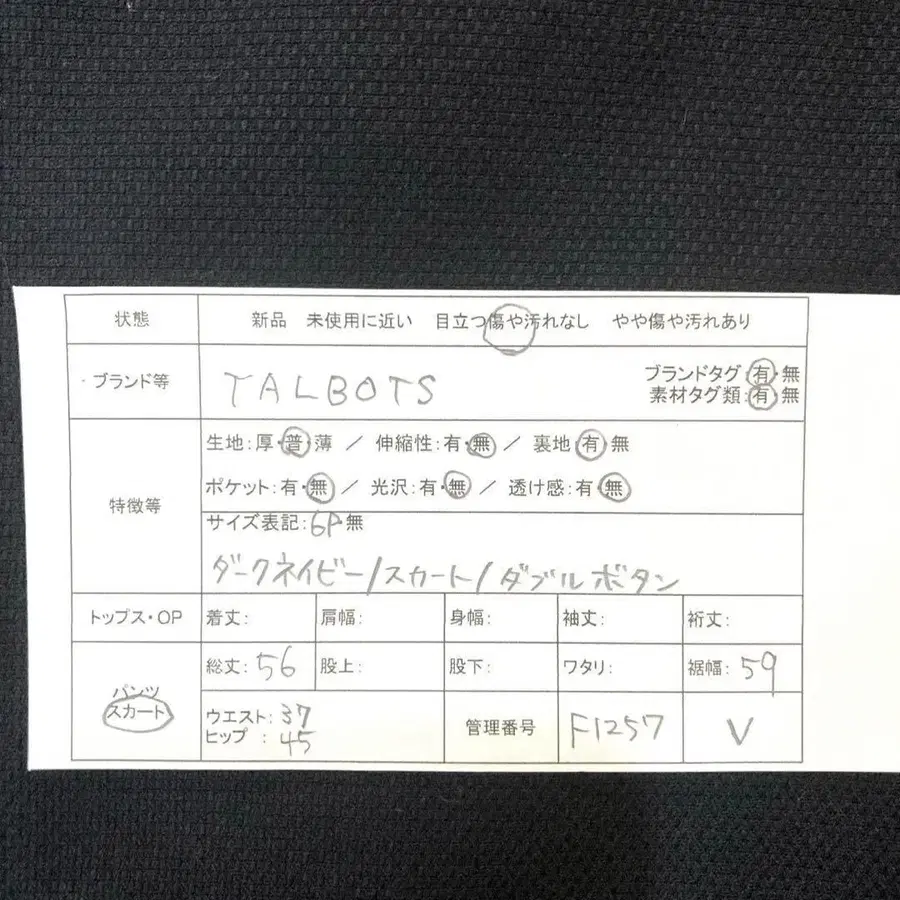 状態 新品 未使用に近い 目立つ傷や汚れなし やや傷や汚れあり
ブランド等 TALBOTS ブランドタグ:有・無
素材タグ類:有・無
特徴等 生地:厚・普・薄 / 伸縮性:有・無 / 裏地:有・無
ポケット:有・無 / 光沢:有・無 / 透け感:有・無
サイズ表記:6P・無
ダークネイビー/スカート/ダブルボタン
トップス・OP 着丈: 肩幅: 身幅: 袖丈: 裄丈:
パンツ 総丈:56 股上: 股下: ワタリ: 裾幅:59
スカート ウエスト:37 管理番号 F1257 V
ヒップ:45